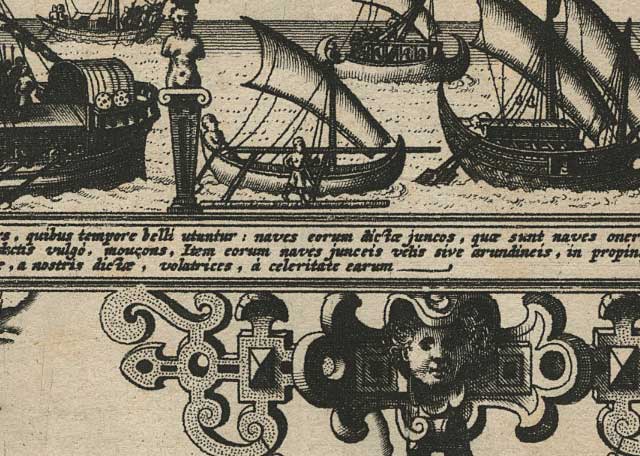 s, quibus tempore belli utuntur: naves eorum dictæ juncos, quæ sunt naves oner
vulgo, mouçons, Item eorum naves junceis velis sive arundineis, in propin
, a nostris dictæ, volatrices, a celeritate earum